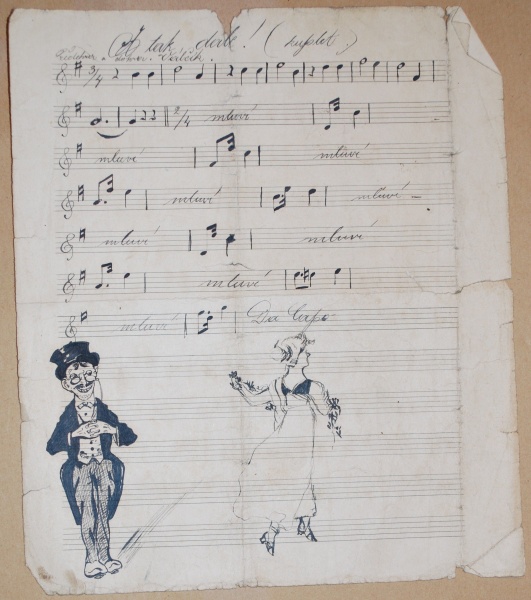 A tak dále! (kuplet)
3/4
2/4 mluví
mluví mluví
mluví mluví
mluví mluví
mluví
mluví Da Capo